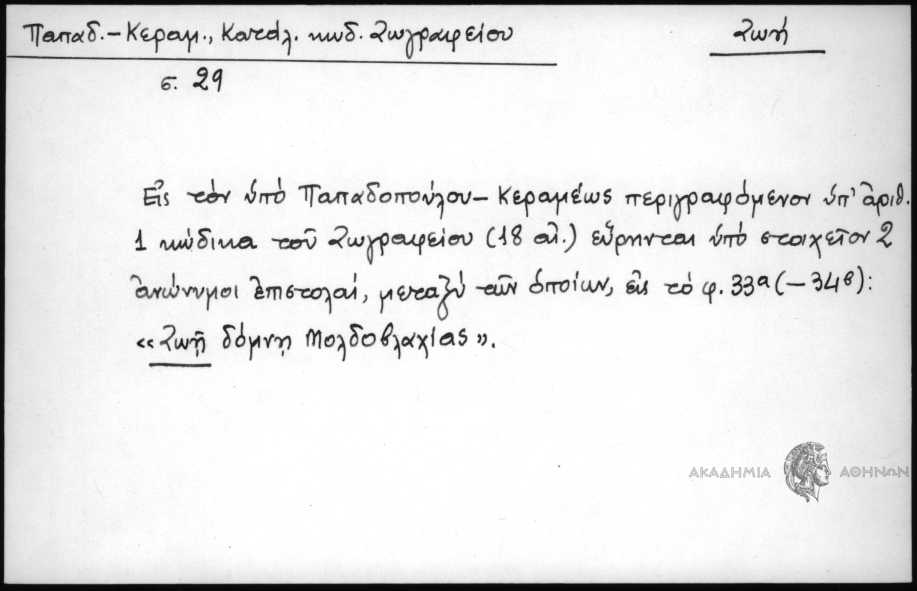 Παπαδ.-Κεραμ., Κατάλ. κωδ. Ζωγραφείου
Ζωή
σ. 29
Εἰς τὸν ὑπὸ Παπαδοπούλου-Κεραμέως περιγραφόμενον ὑπ' ἀριθ.
1 κώδικα τοῦ Ζωγραφείου (18 αἰ.) εὕρηνται ὑπὸ στοιχεῖον 2
ἀνώνυμοι ἐπιστολαί, μεταξὺ τῶν ὁποίων, εἰς τὸ φ. 33α (-34β):
«Ζωῇ δόμνῃ Μολδοβλαχίας».
ΑΚΑΔΗΜΙΑ ΑΘΗΝΩΝ